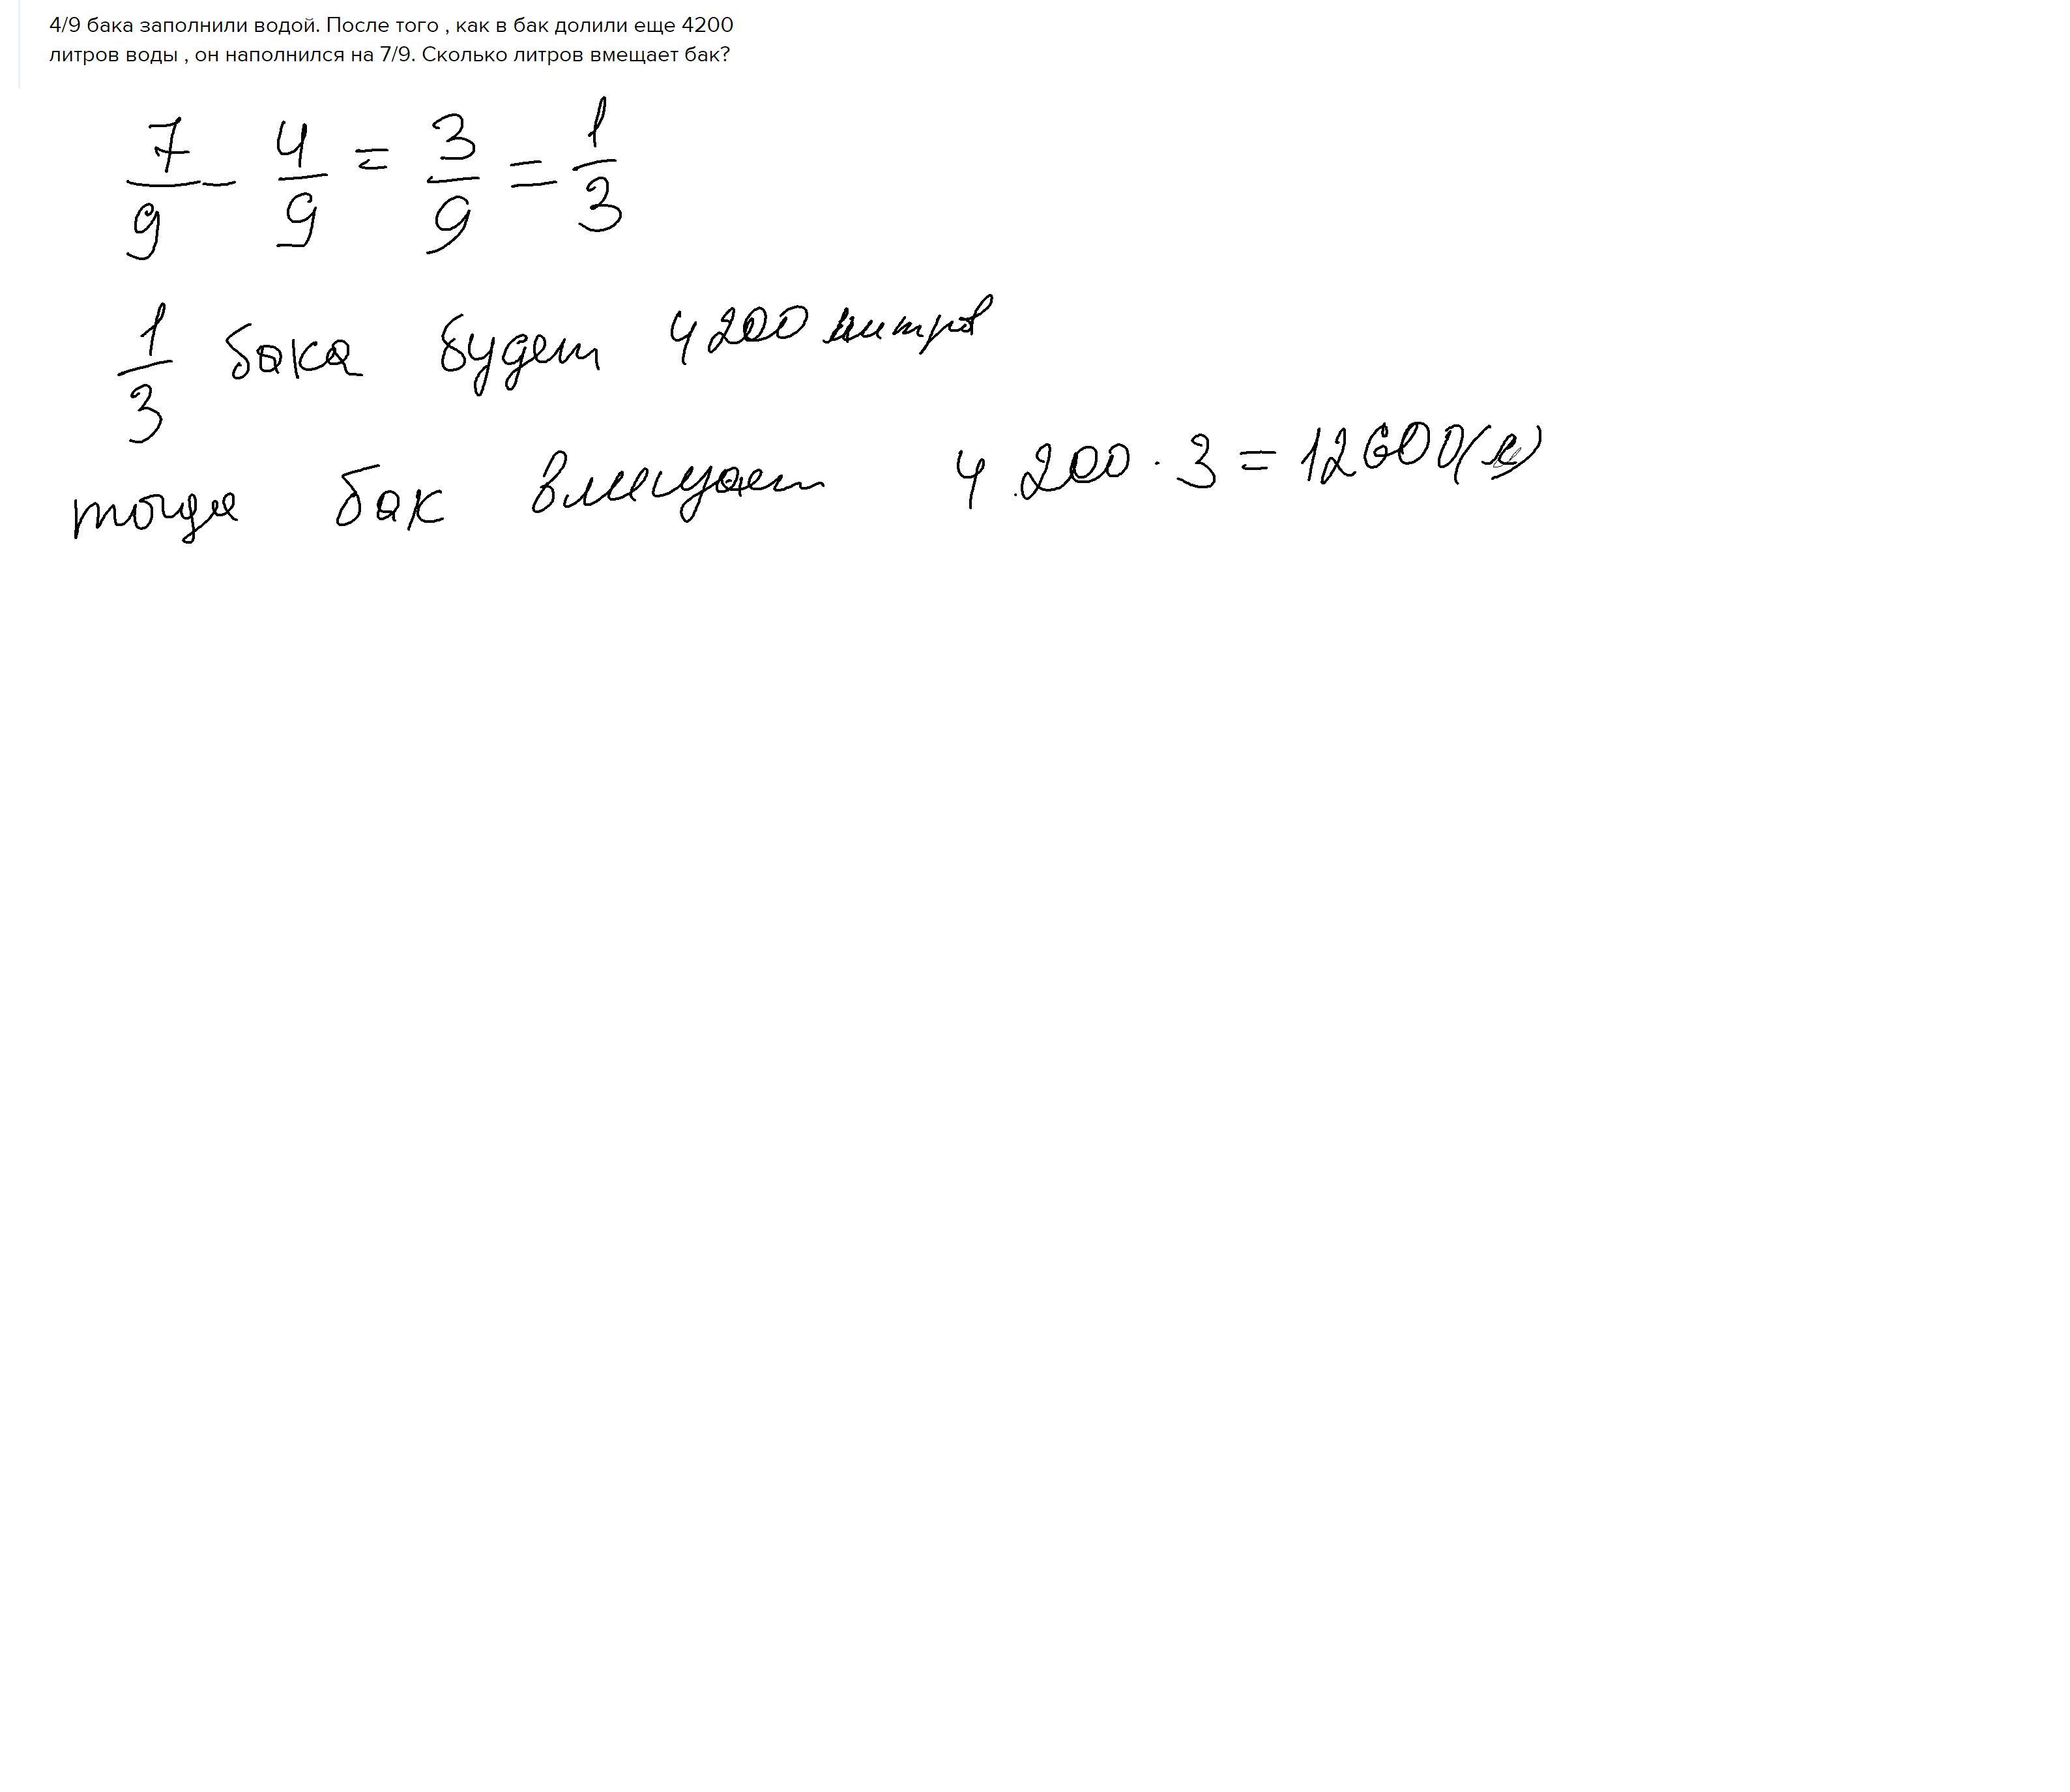 4/9 бака заполнили водой. После того , как в бак долили еще 4200
литров воды , он наполнился на 7/9. Сколько литров вмещает бак?
7/9 - 4/9 = 3/9 = 1/3
1/3 бака будет 4200 литров
тогда бак вмещает 4200 · 3 = 12600(л)